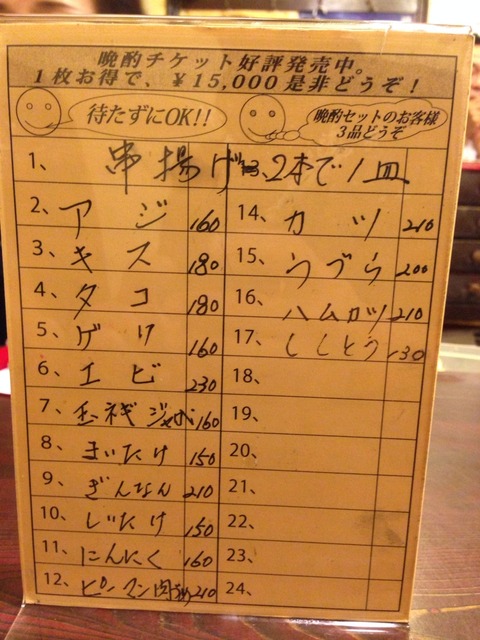 晩酌チケット好評発売中。
1枚お得で、￥15,000是非どうぞ！
待たずにOK!!
晩酌セットのお客様
3品どうぞ
1、 串揚げ 2本で1皿
2、 アジ 160
3、 キス 180
4、 タコ 180
5、 ゲソ 160
6、 エビ 230
7、 玉ネギジャガ 160
8、 まいたけ 150
9、 ぎんなん 210
10、 しいたけ 150
11、 にんにく 160
12、 ピーマン肉 210
14、 カツ 210
15、 うづら 200
16、 ハムカツ 210
17、 ししとう 130
18、
19、
20、
21、
22、
23、
24、